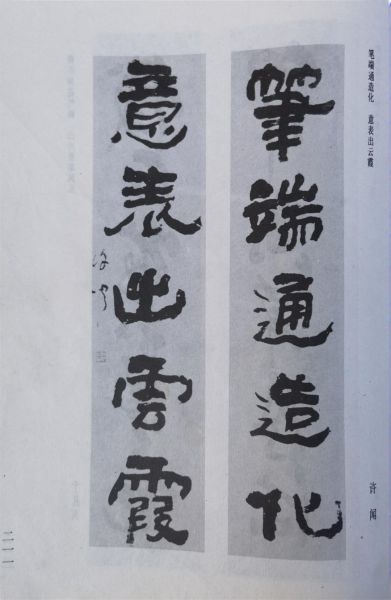 笔端通造化 意表出云霞
筆端通造化
意表出雲霞
许闻
二一一